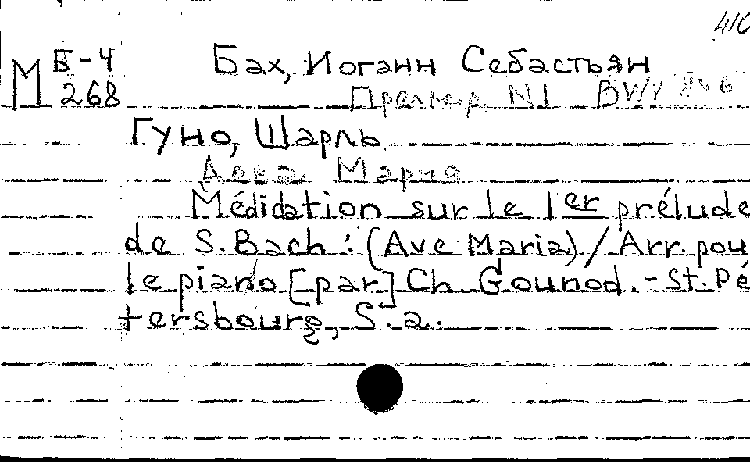 410
М Б-4
268
Бах, Иоганн Себастьян
N1 BWV 846
Гуно, Шарль
Аве Мария
Méditation sur le 1er prélude
de S. Bach : (Ave Maria) / Arr. pou
le piano [par] Ch Gounod. - St. Pé
tersbourg, S. a.